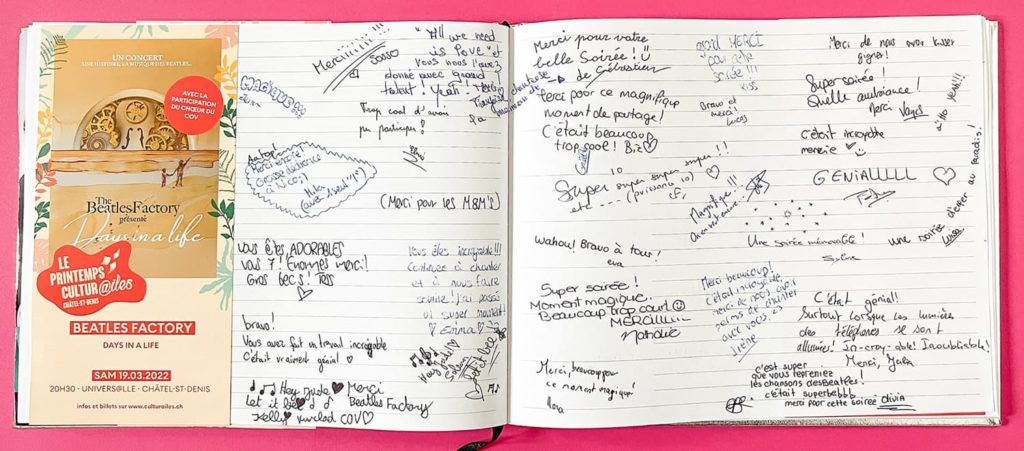 UN CONCERT
UNE HISTOIRE, LA MUSIQUE DES BEATLES...
AVEC LA
PARTICIPATION
DU CHŒUR DU
COV
The
BeatlesFactory
présente
Days in a life
LE
PRINTEMPS
CULTUR@ILES
CHÂTEL-ST-DENIS
BEATLES FACTORY
DAYS IN A LIFE
SAM 19.03.2022
20H30 · UNIVERS@LLE · CHÂTEL-ST-DENIS
infos et billets sur www.culturailes.ch
Sosso
"All we need
is love" et
vous nous l'avez
donné avec grand
talent! Yeah! Merci
Trop cool d'avoir
pu participer!
(Merci pour les M&M's)
Vous êtes ADORABLES
Vous 7! Enormes merci!
Gros becs! Tess
Vous êtes incroyable!!!
Continuez à chanter
et à nous faire
sourire! J'ai passé
un super moment!
Emma
bravo!
Vous avez fait un travail incroyable
C'était vraiment génial
Hey Jude Merci
Let it Bee Beatles Factory
Kelly COV
Merci pour votre
belle Soirée!
de Sébastien
Merci pour ce magnifique
moment de partage!
C'était beaucoup
trop cool! Biz
MERCI
pour cette
soirée!!!
Kiss
Bravo et
merci
Lucas
Merci de nous avoir laisser
Super soirée!
Quelle ambiance!
Merci
C'était incroyable
merciie
10
Super super super super!!
etc---- (puissance 10)
Magnifique!!!
GENIALLLLL
Wahou! Bravo à tous!
eva
Une soirée mémorable!
Sylvie
une soirée d'enfer au paradis!
Super soirée!
Moment magique.
Beaucoup trop court
MERCIIIIIII
Nathalie
Merci beaucoup!
C'était incroyable
merci de nous avoir
permis de chanter
avec vous.
Irène
C'était génial!
Surtout lorsque les lumières
des téléphones se sont
allumées! In-croy-able! Inoubliable!
Merci,
Merci, beaucoup pour
ce moment magique!
c'est super
que vous repreniez
les chansons des Beatles!
c'était superbebbb
merci pour cette soirée Olivia